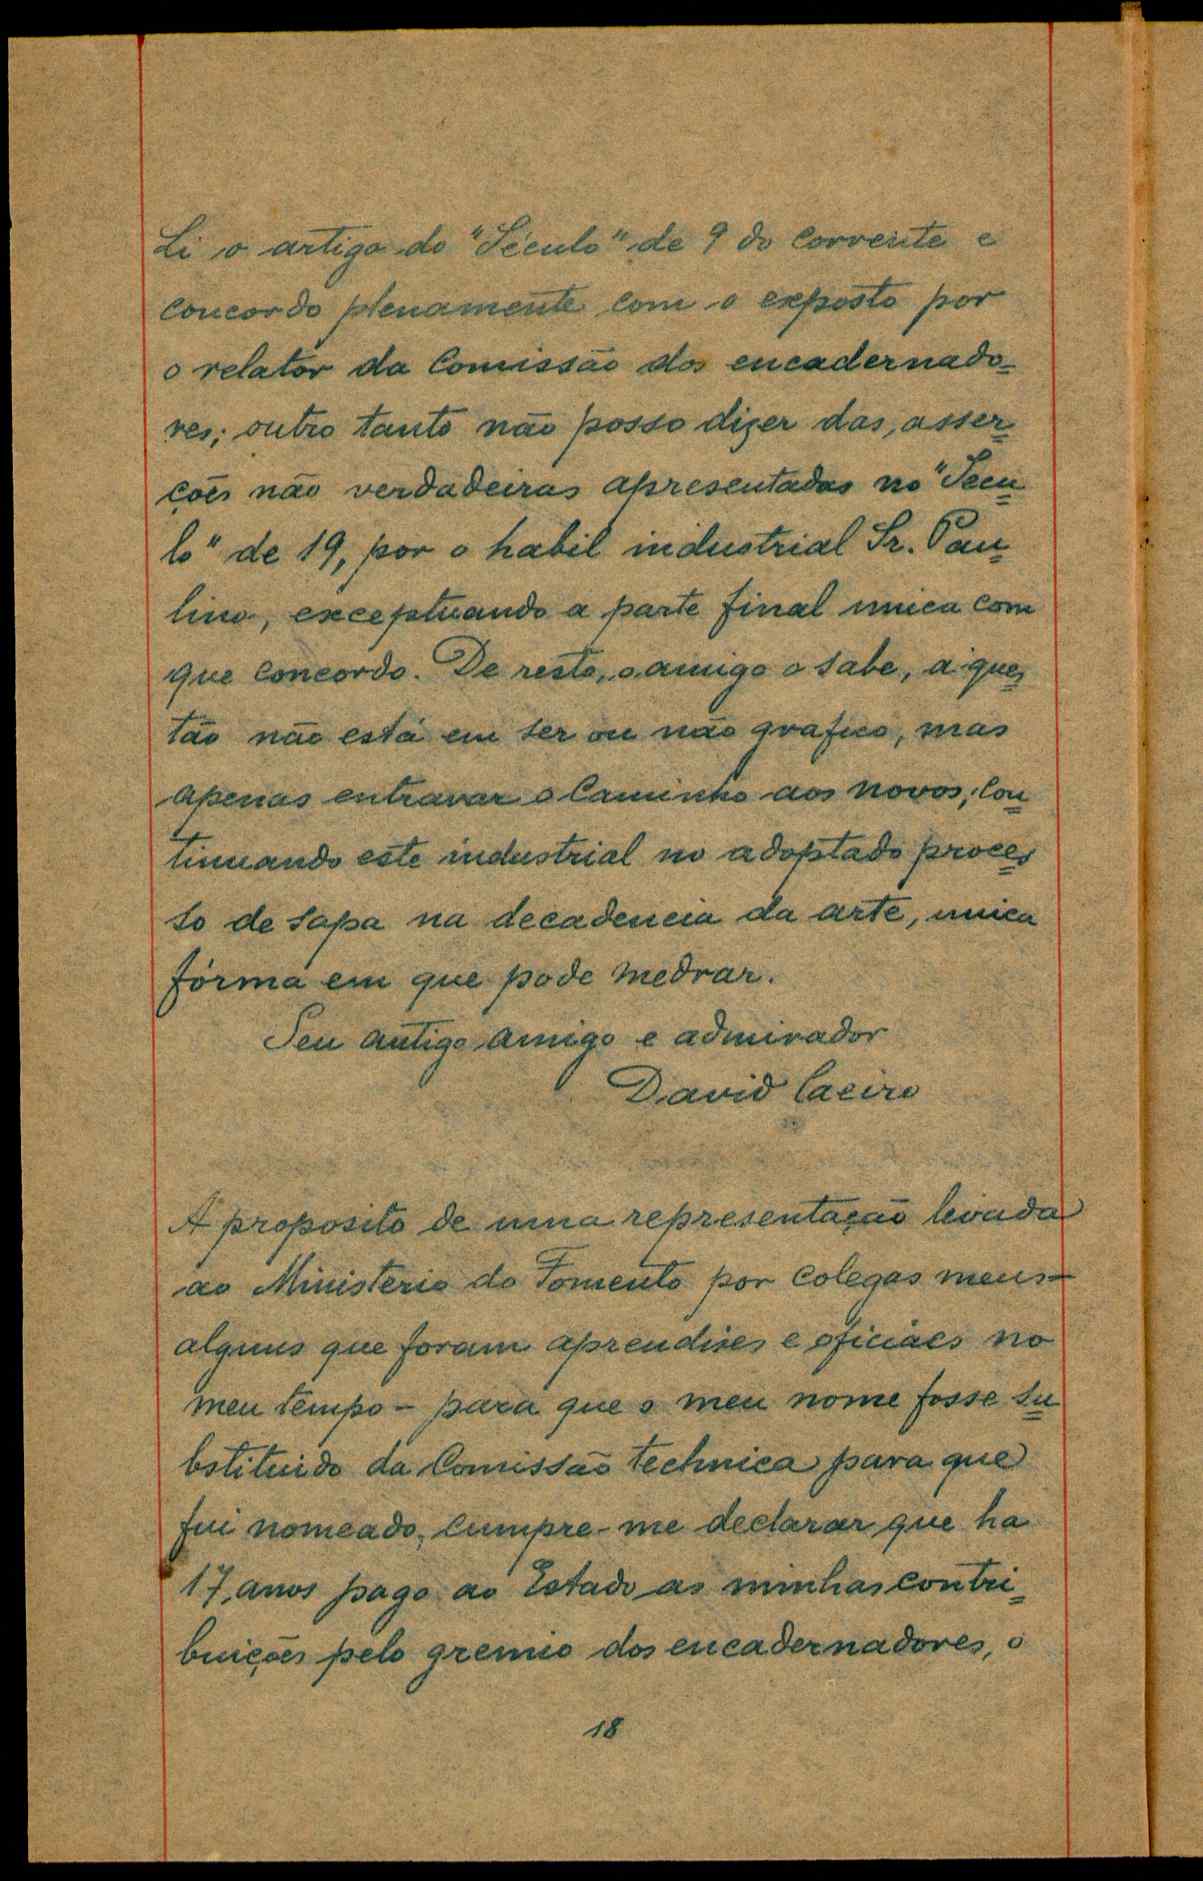 Li o artigo do "Século" de 9 do corrente e
concordo plenamente com o exposto por
o relator da Comissão dos encadernado-
res; outro tanto não posso dizer das, asser-
ções não verdadeiras apresentadas no "Secu-
lo" de 19, por o habil industrial Sr. Pau-
lino, exceptuando a parte final unica com
que concordo. De resto, o amigo o sabe, a ques-
tão não está em ser ou não grafico, mas
apenas entravar o caminho aos novos; con-
tinuando este industrial no adoptado proces-
so de sapa na decadencia da arte, unica
fórma em que pode medrar.
Seu antigo amigo e admirador
David Caeiro
A proposito de uma representação levada
ao Ministerio do Fomento por colegas meus-
alguns que foram aprendises e oficiaes no
meu tempo - para que o meu nome fosse su-
bstituido da Comissão technica para que
fui nomeado, cumpre-me declarar que ha
17, anos pago ao Estado as minhas contri-
buições pelo gremio dos encadernadores, o
18